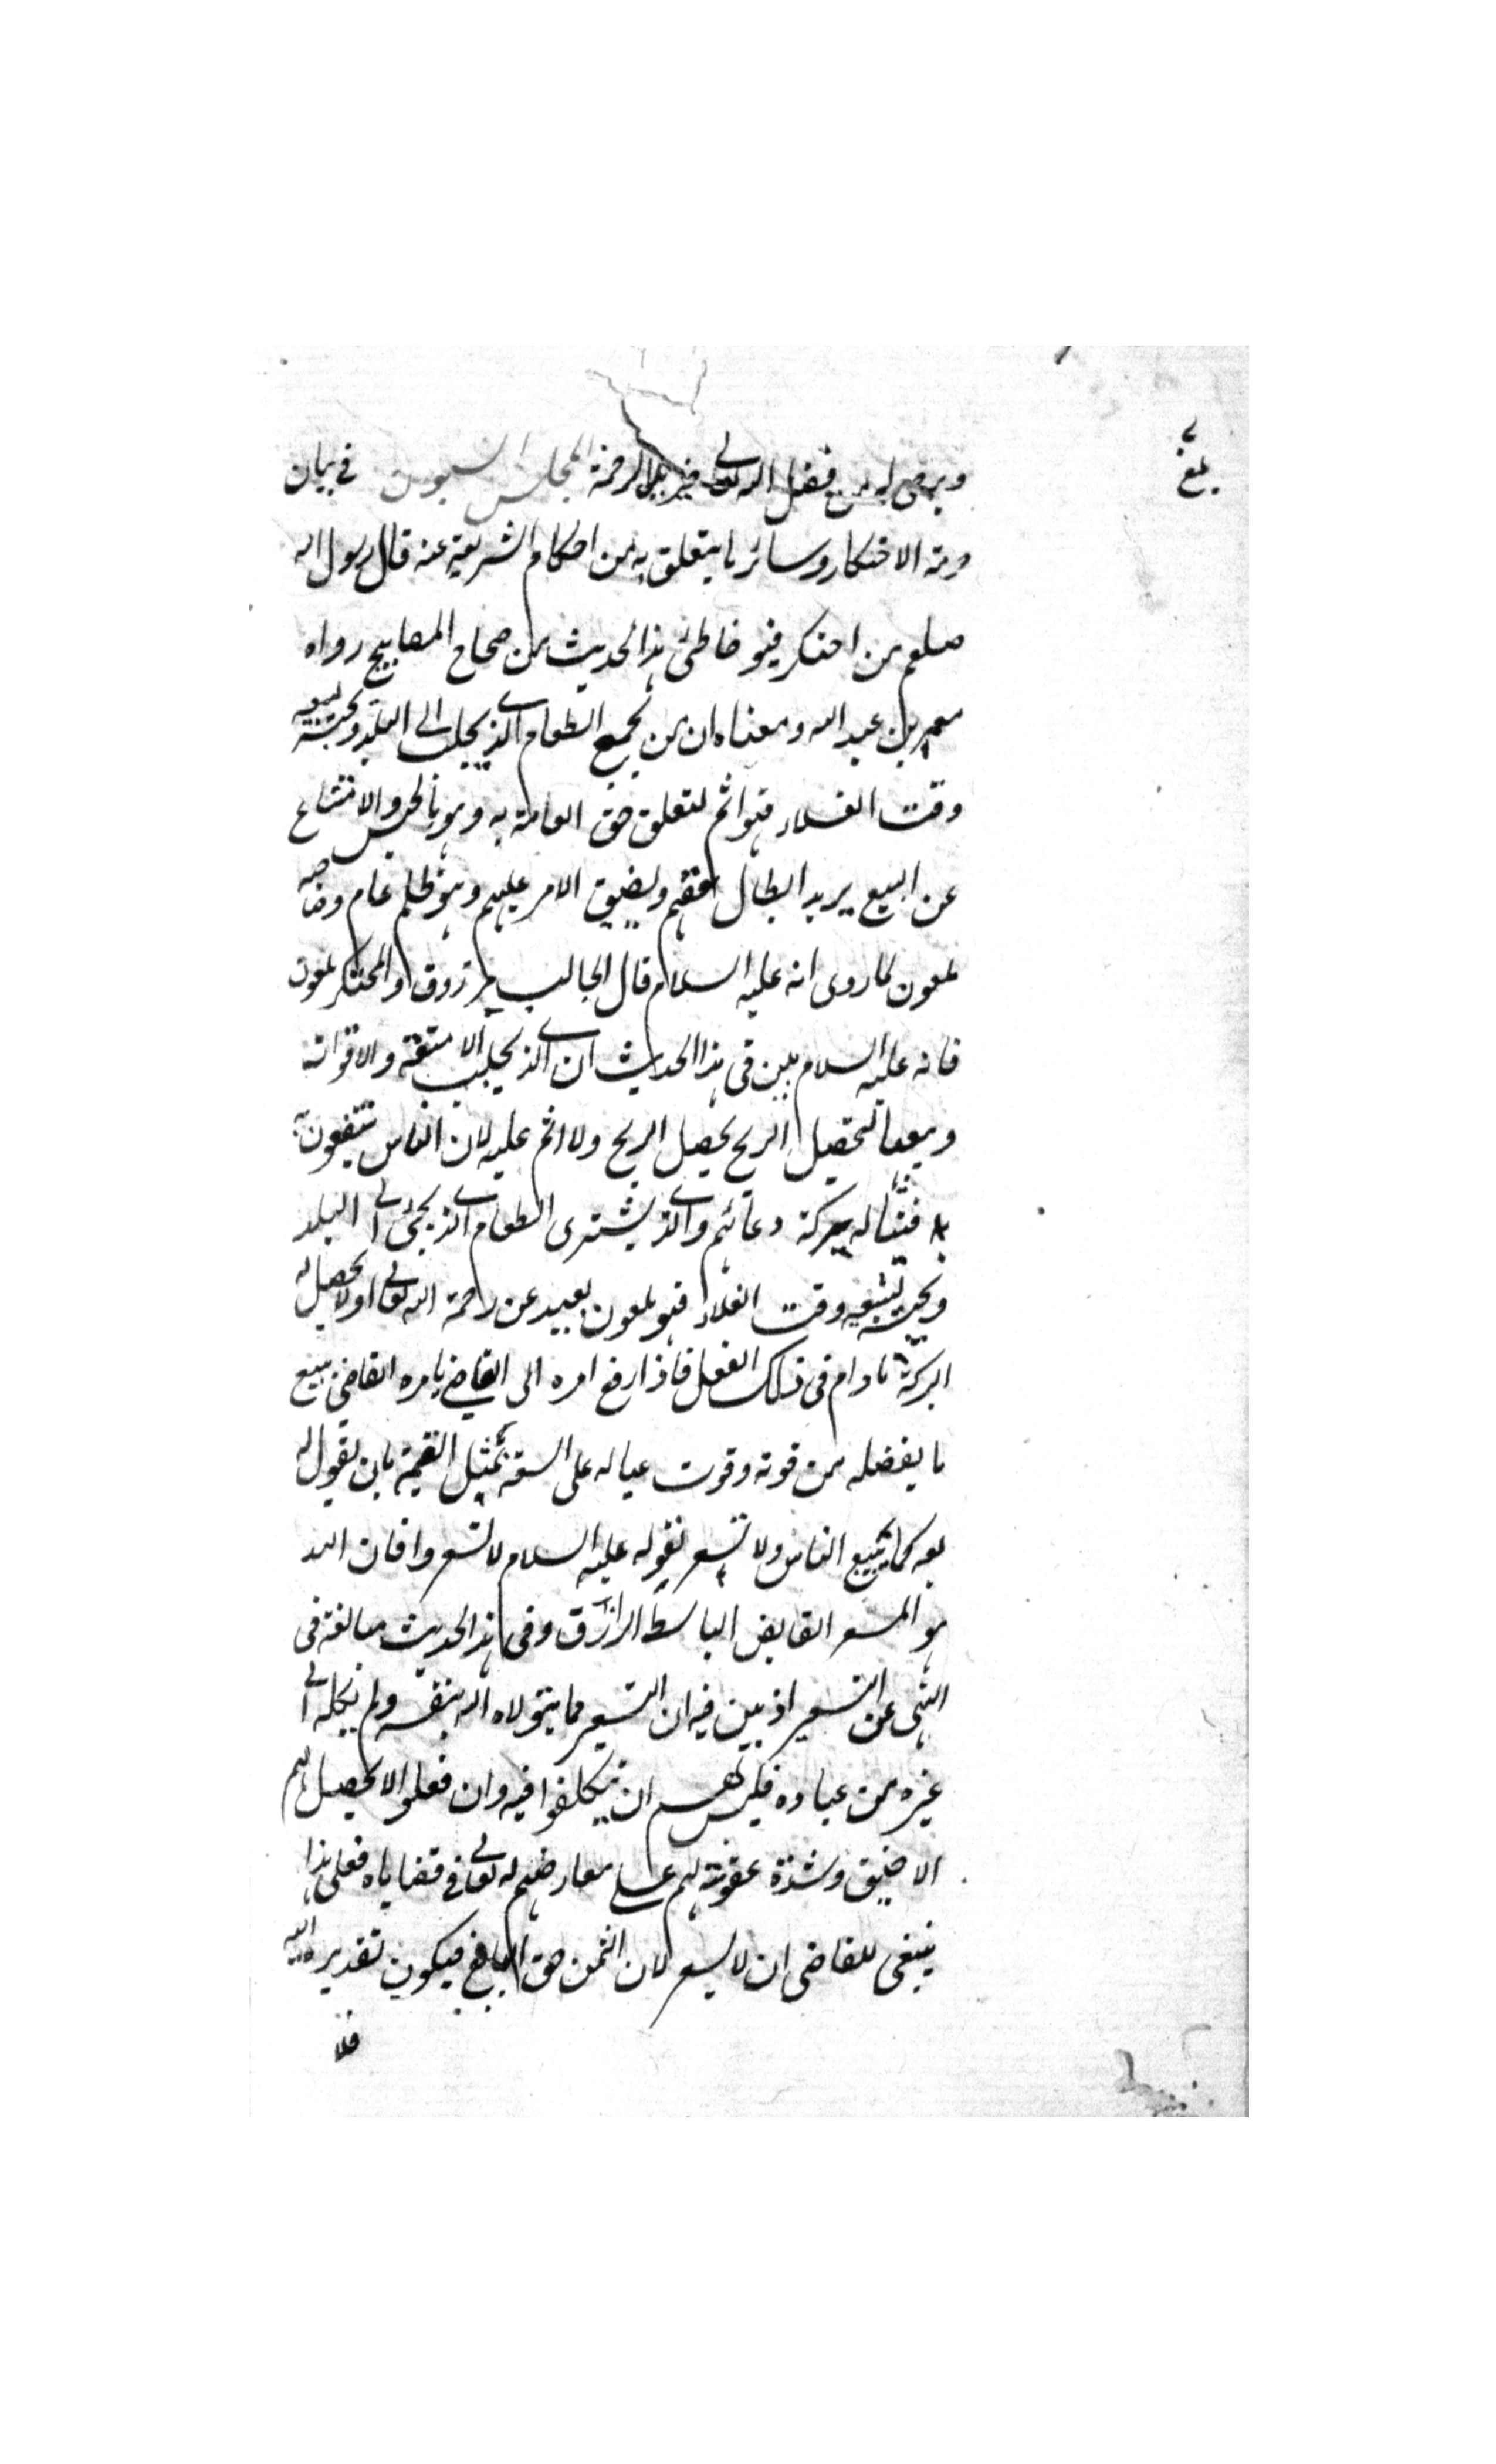 بلغ
ويرجى له من فضل الله تعالى خير تلك الرحمة المجلس السبعون فى بيان
حرمة الاحتكار وسائر ما يتعلق به من احكام الشريعة عنه قال رسول الله
صلعم من احتكر فهو خاطئ هذا الحديث من صحاح المصابيح رواه
معمر بن عبد الله ومعناه ان من يجمع الطعام الذى يجلب الى البلد ويحبسه ليبيعه
وقت الغلاء فهو اثم لتعلق حق العامة به وهو بالحبس والامتناع
عن البيع يريد ابطال حقهم ويضيق الامر عليهم وهو ظلم عام وصاحبه
ملعون لما روى انه عليه السلام قال الجالب مرزوق والمحتكر ملعون
فانه عليه السلام بين فى هذا الحديث ان الذى يجلب الامتعة والاقوات
ويبيعها لتحصيل الربح يحصل الربح ولا اثم عليه لان الناس ينتفعون به
فيناله بركة دعائهم والذى يشترى الطعام الذى يجئ الى البلد
ويحبسه ليبيعه وقت الغلاء فهو ملعون بعيد عن رحمة الله تعالى ولا يحصل له
البركة ما دام فى ذلك الفعل فاذا رفع امره الى القاضى يأمره القاضى ببيع
ما يفضله من قوته وقوت عياله على السعة بمثل القيمة بان يقول له
بعه كما يبيع الناس ولا تسعر لقوله عليه السلام لا تسعروا فان الله
هو المسعر القابض الباسط الرازق وفى هذا الحديث مبالغة فى
النهى عن التسعير اذ بين فيه ان التسعير مما يتولاه الله بنفسه ولم يكله الى
غيره من عباده فليس لهم ان يتكلفوا فيه وان فعلوا لا يحصل لهم
الا ضيق وشدة عقوبة لهم على معارضتهم له تعالى فى قضاياه فعلى هذا
ينبغى للقاضى ان لا يسعر لان الثمن حق البايع فيكون تقديره اليه
فلا